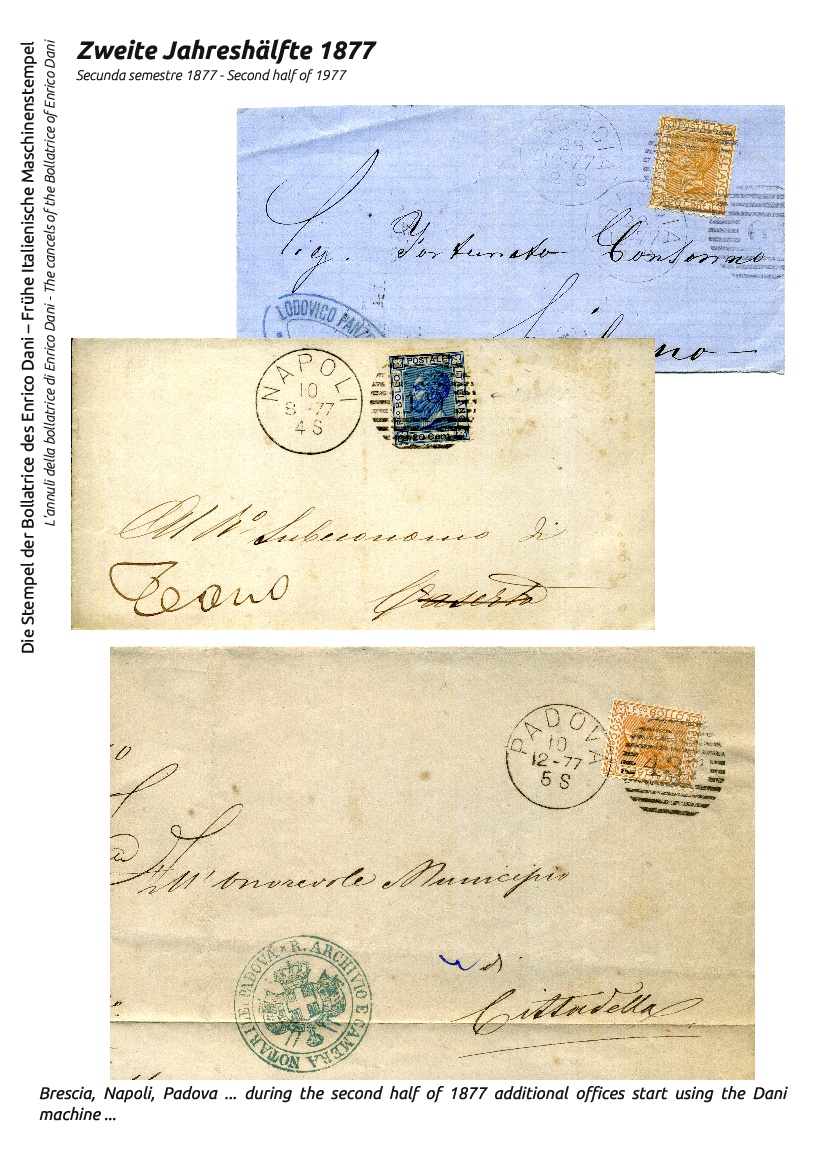 Zweite Jahreshälfte 1877
Secunda semestre 1877 - Second half of 1977
Die Stempel der Bollatrice des Enrico Dani – Frühe Italienische Maschinenstempel
L'annuli della bollatrice di Enrico Dani - The cancels of the Bollatrice of Enrico Dani
12-77
POSTALE
Sig. Fortunato Consonno
LODOVICO
NAPOLI
10
8 -77
4 S
POSTALE
BOLLO
20 Cent
di
Teano
Caserta
PADOVA
10
12-77
5 S
BOLLO
All' Onorevole Municipio
di
Cittadella
PADOVA * R. ARCHIVIO E CAMERA NOTARILE
Brescia, Napoli, Padova ... during the second half of 1877 additional offices start using the Dani
machine ...